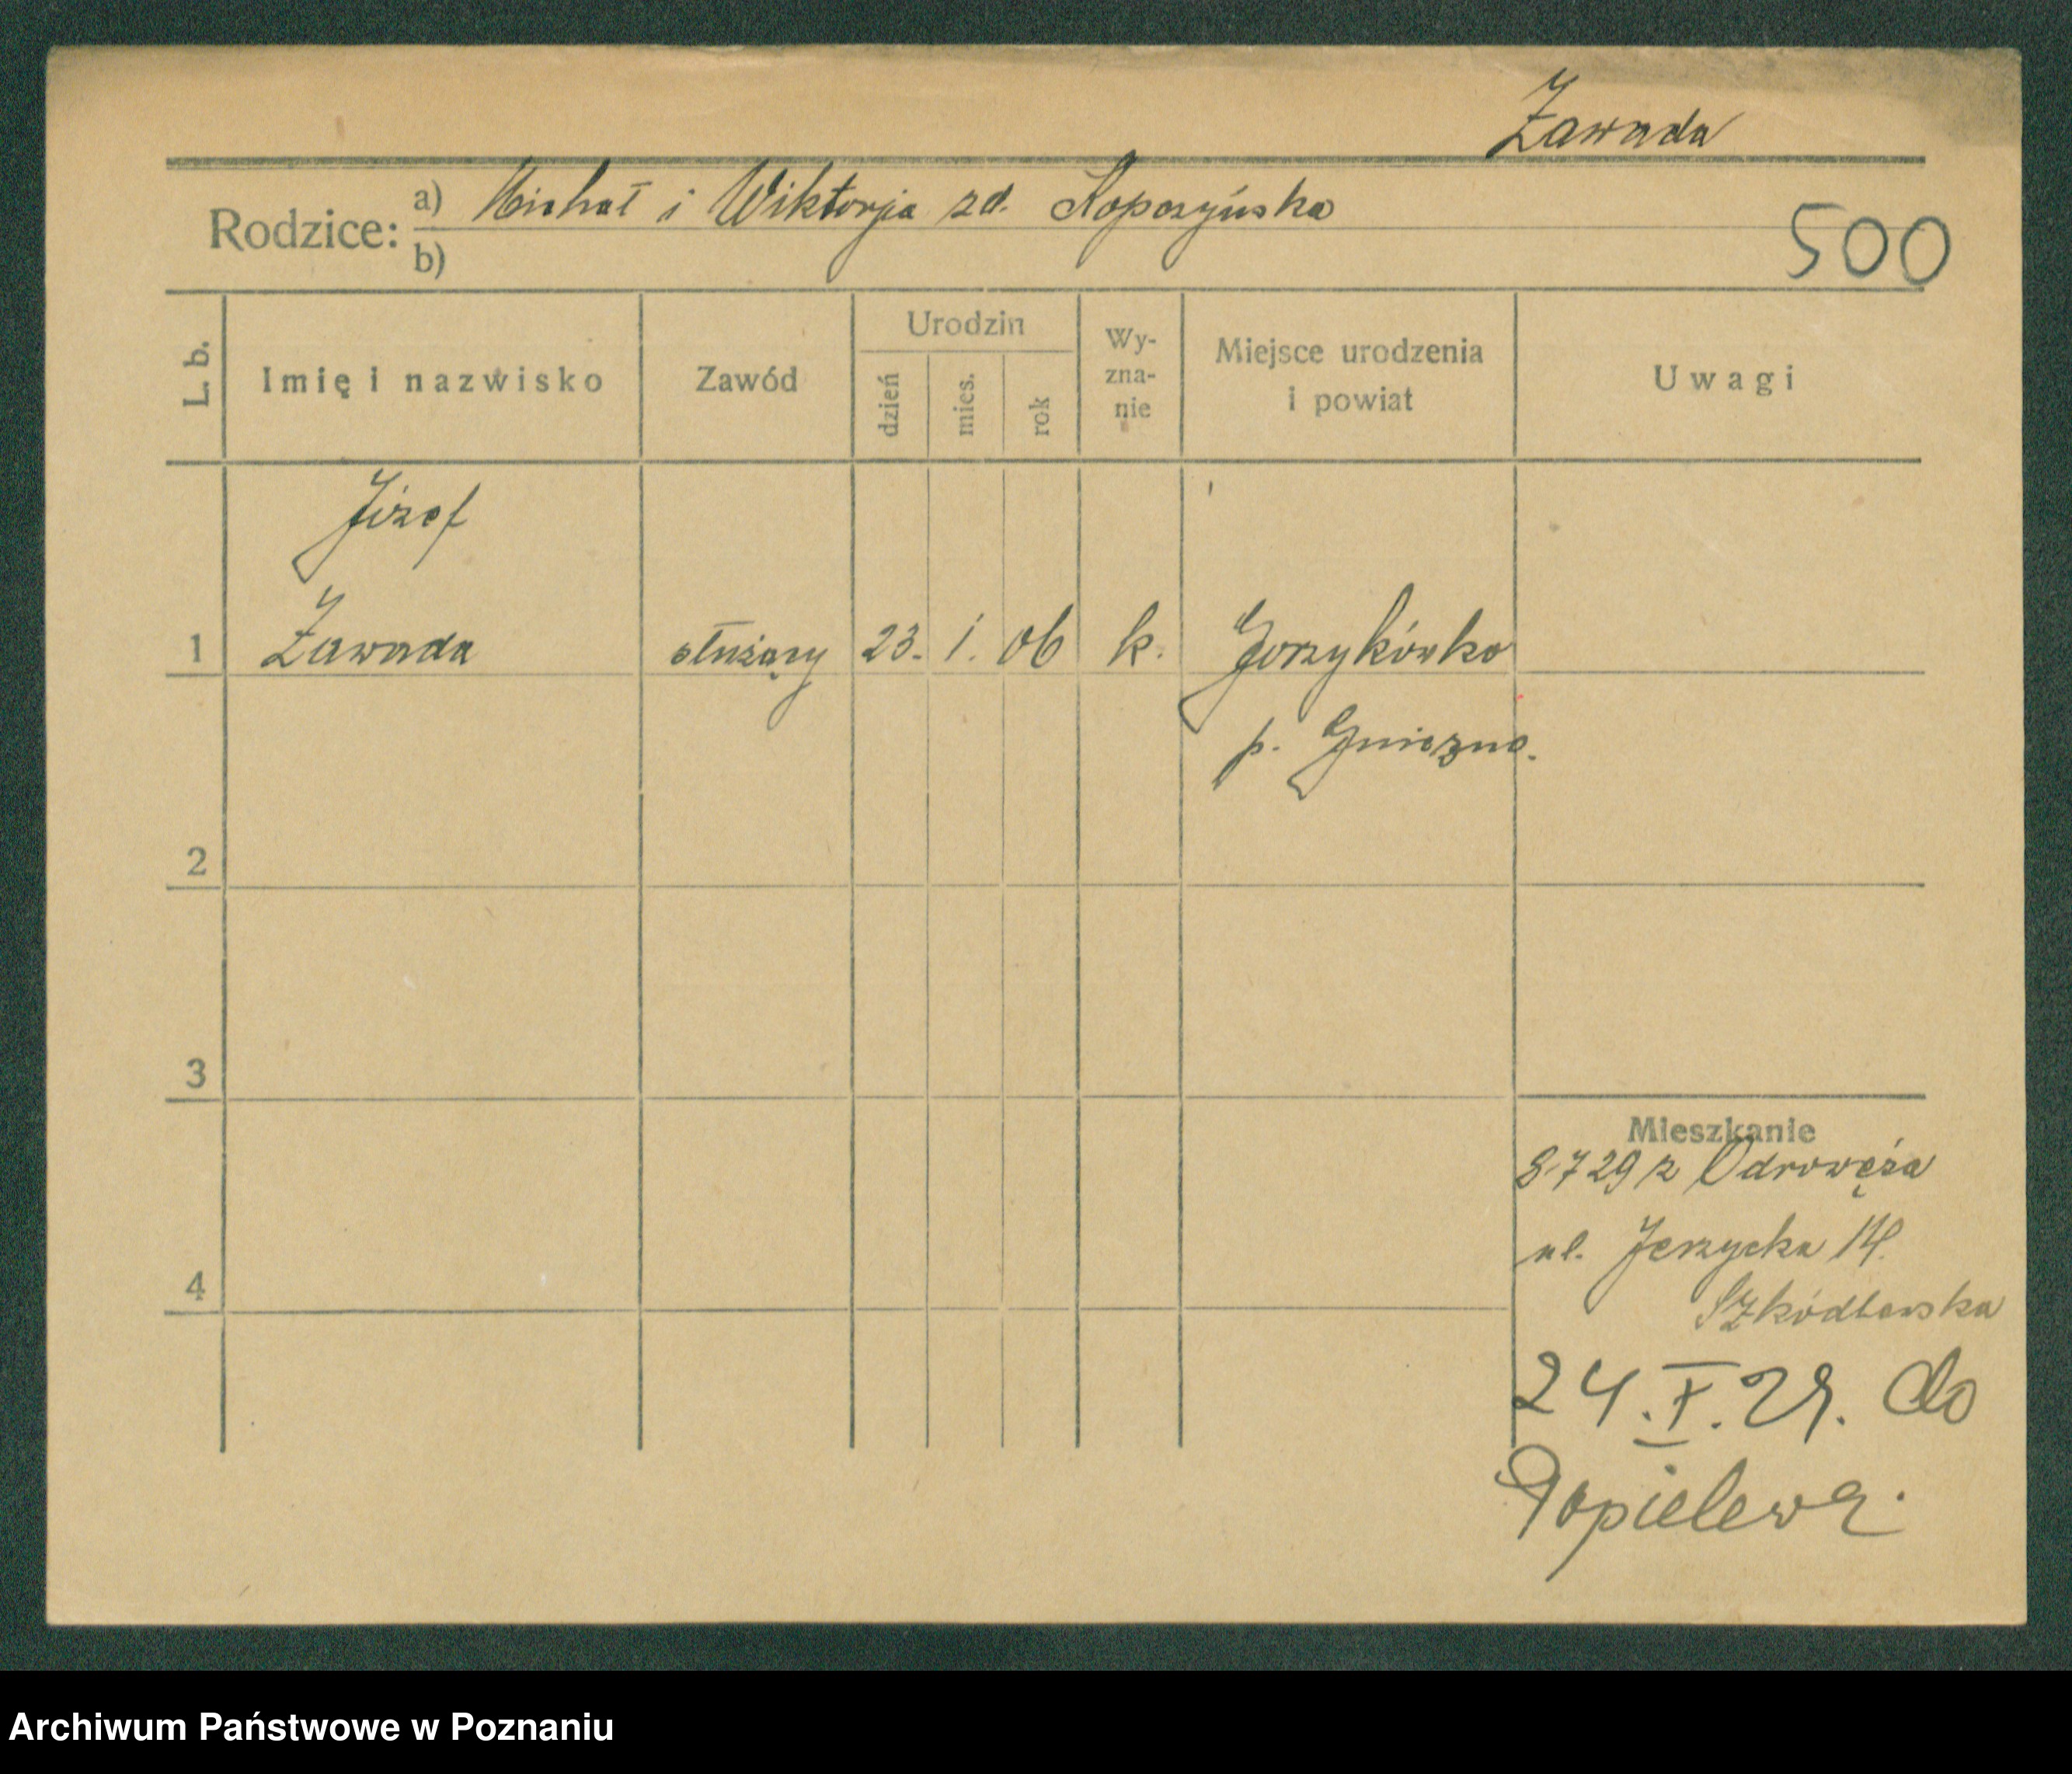 Zawada
Rodzice: a) Michał i Wiktorja zd. Kopczyńska
b)
500
L. b.
Imię i nazwisko
Zawód
Urodzin
dzień
mies.
rok
Wy-
zna-
nie
Miejsce urodzenia
i powiat
Uwagi
Józef
1 Zawada służący 23. 1. 06 k. Gorzykówko
p. Gniezno.
2
3
4
Mieszkanie
8·7 29 z Odrowęża
ul. Jerzycka 14.
24. X. 29. do
Popielewa.
Archiwum Państwowe w Poznaniu